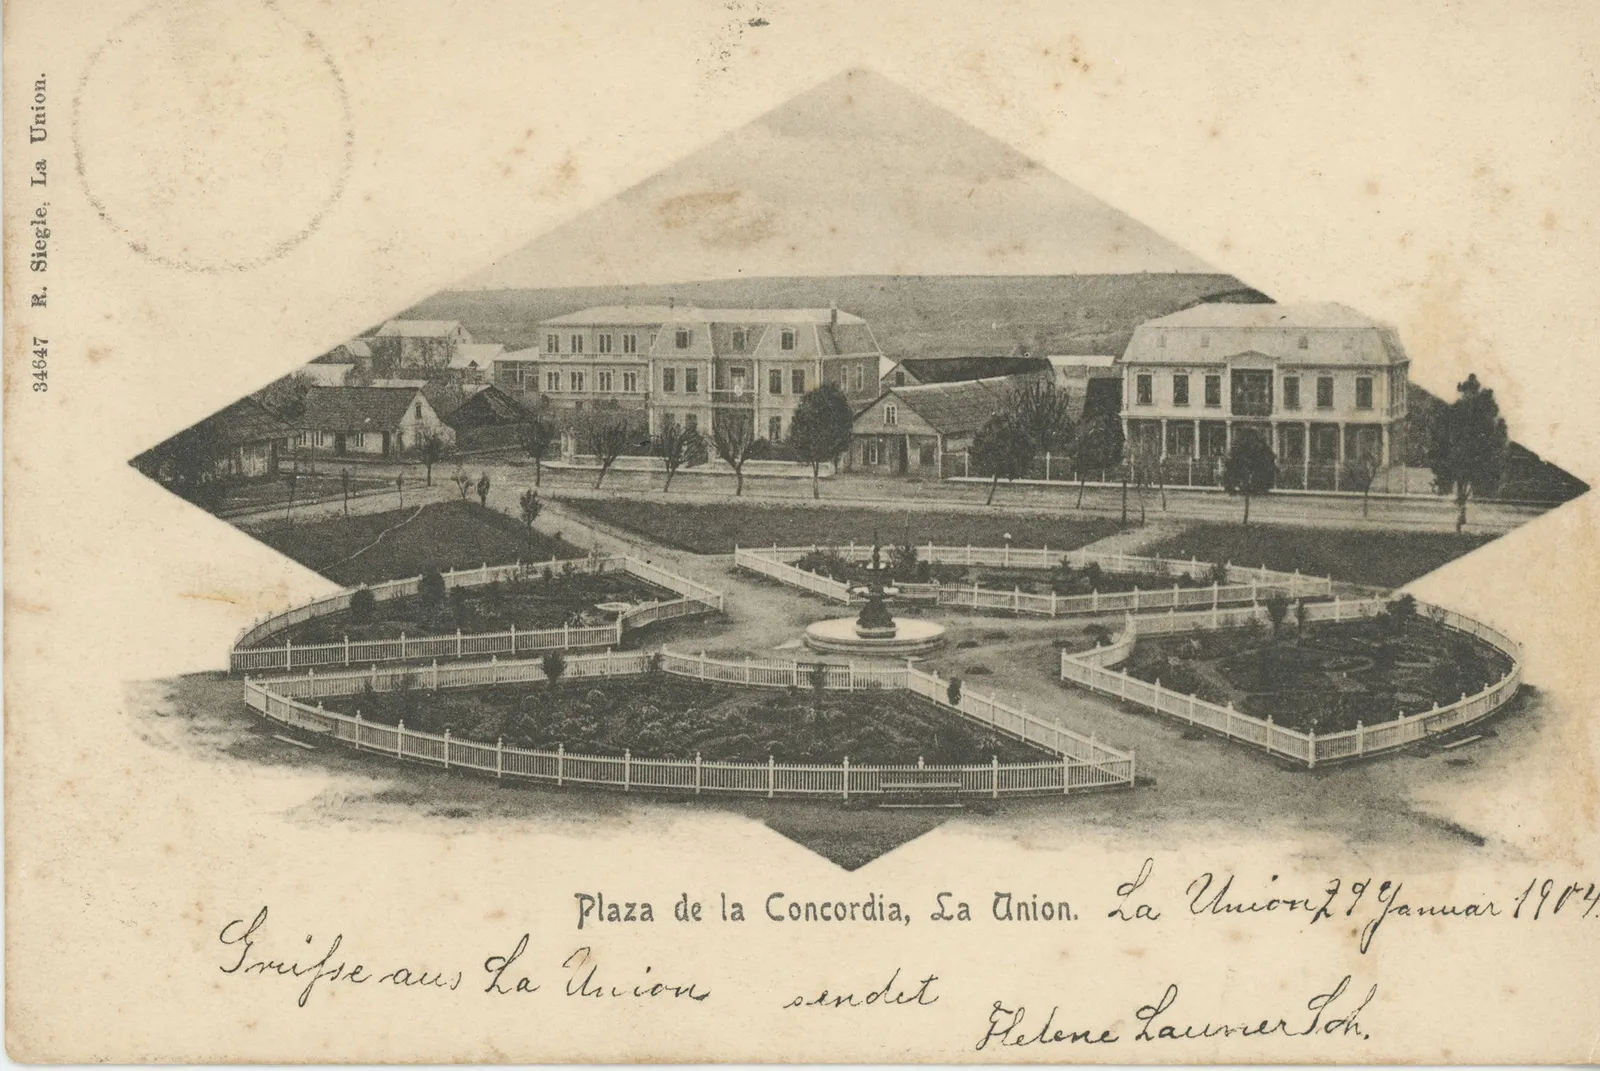 34647 R. Siegle, La Union.
Plaza de la Concordia, La Union.
La Union, 29 Januar 1904.
Grüfse aus La Union sendet
Helene Launer Sch.